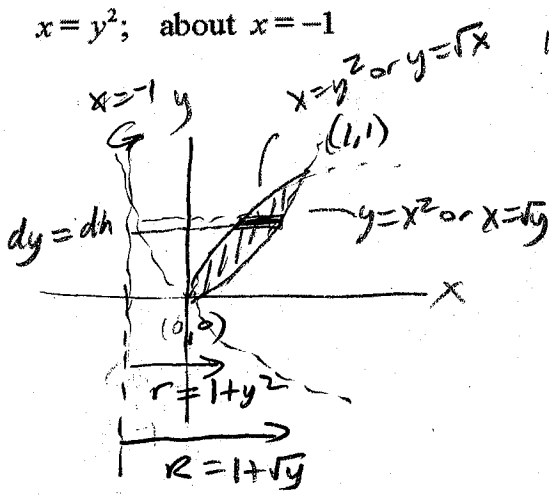 x = y²; about x = −1
x=-1
y
x=y² or y=√x
(1,1)
dy = dh
y=x² or x=√y
x
(0,0)
r = 1+y²
R = 1+√y